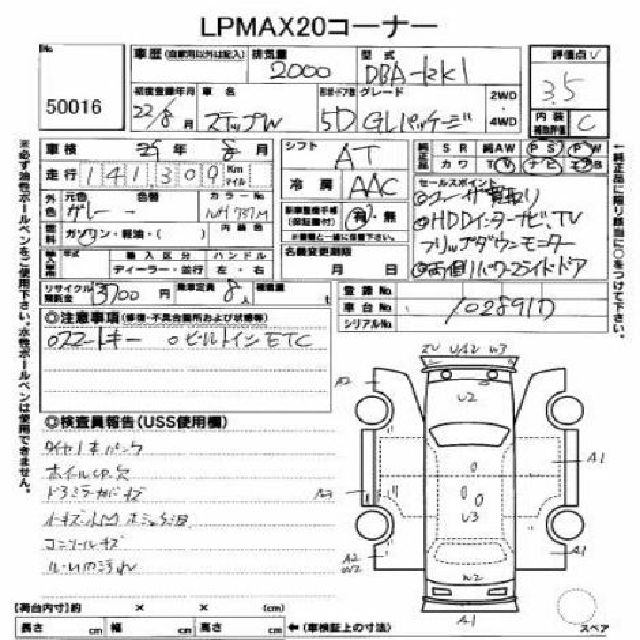 LPMAX20コーナー
No.
50016
車歴 (自家用以外は記入)
排気量
2000
型式
DBA-RK1
評価点
3.5
内装
補助評価
C
初度登録年月
22/8月
車名
ステップW
形状・ドア数
5D
グレード
GLパッケージ
2WD
・
4WD
車検
年 8月
シフト
AT
純正品
S R 純AW P S P W
カワ T V ナビ エアB
走行
141,309
Km
マイル
冷房
AAC
セールスポイント
○ユーザー買取り
○HDDインターナビ、TV
フリップダウンモニター
○両側パワースライドドア
外色
元色
色替
カラーNo.
グレー
NH737M
新車整備手帳
(保証書付)
有・無
燃料
ガソリン・軽油・(
内装色
※書類と一緒に保管下さい。
輸入区分
ハンドル
ディーラー・並行
左・右
名義変更期限
月 日
リサイクル
預託金
円
乗車定員
8人
積載量
t
登録No.
車台No.
1028917
シリアルNo.
◎注意事項(修復・不具合箇所および状態等)
○スマートキー ○ビルトインETC
◎検査員報告(USS使用欄)
タイヤ1本パンク
ドアミラーカバーキズ
コンソールキズ
A2
U2
A1
U3
A2
W2
A1
W2
A1
スペア
【荷台内寸】約 × × (cm)
長さ cm 幅 cm 高さ cm ←(車検証上の寸法)
※必ず油性ボールペンをご使用下さい。水性ボールペンは使用できません。
↑純正品に限り該当に○をつけて下さい。